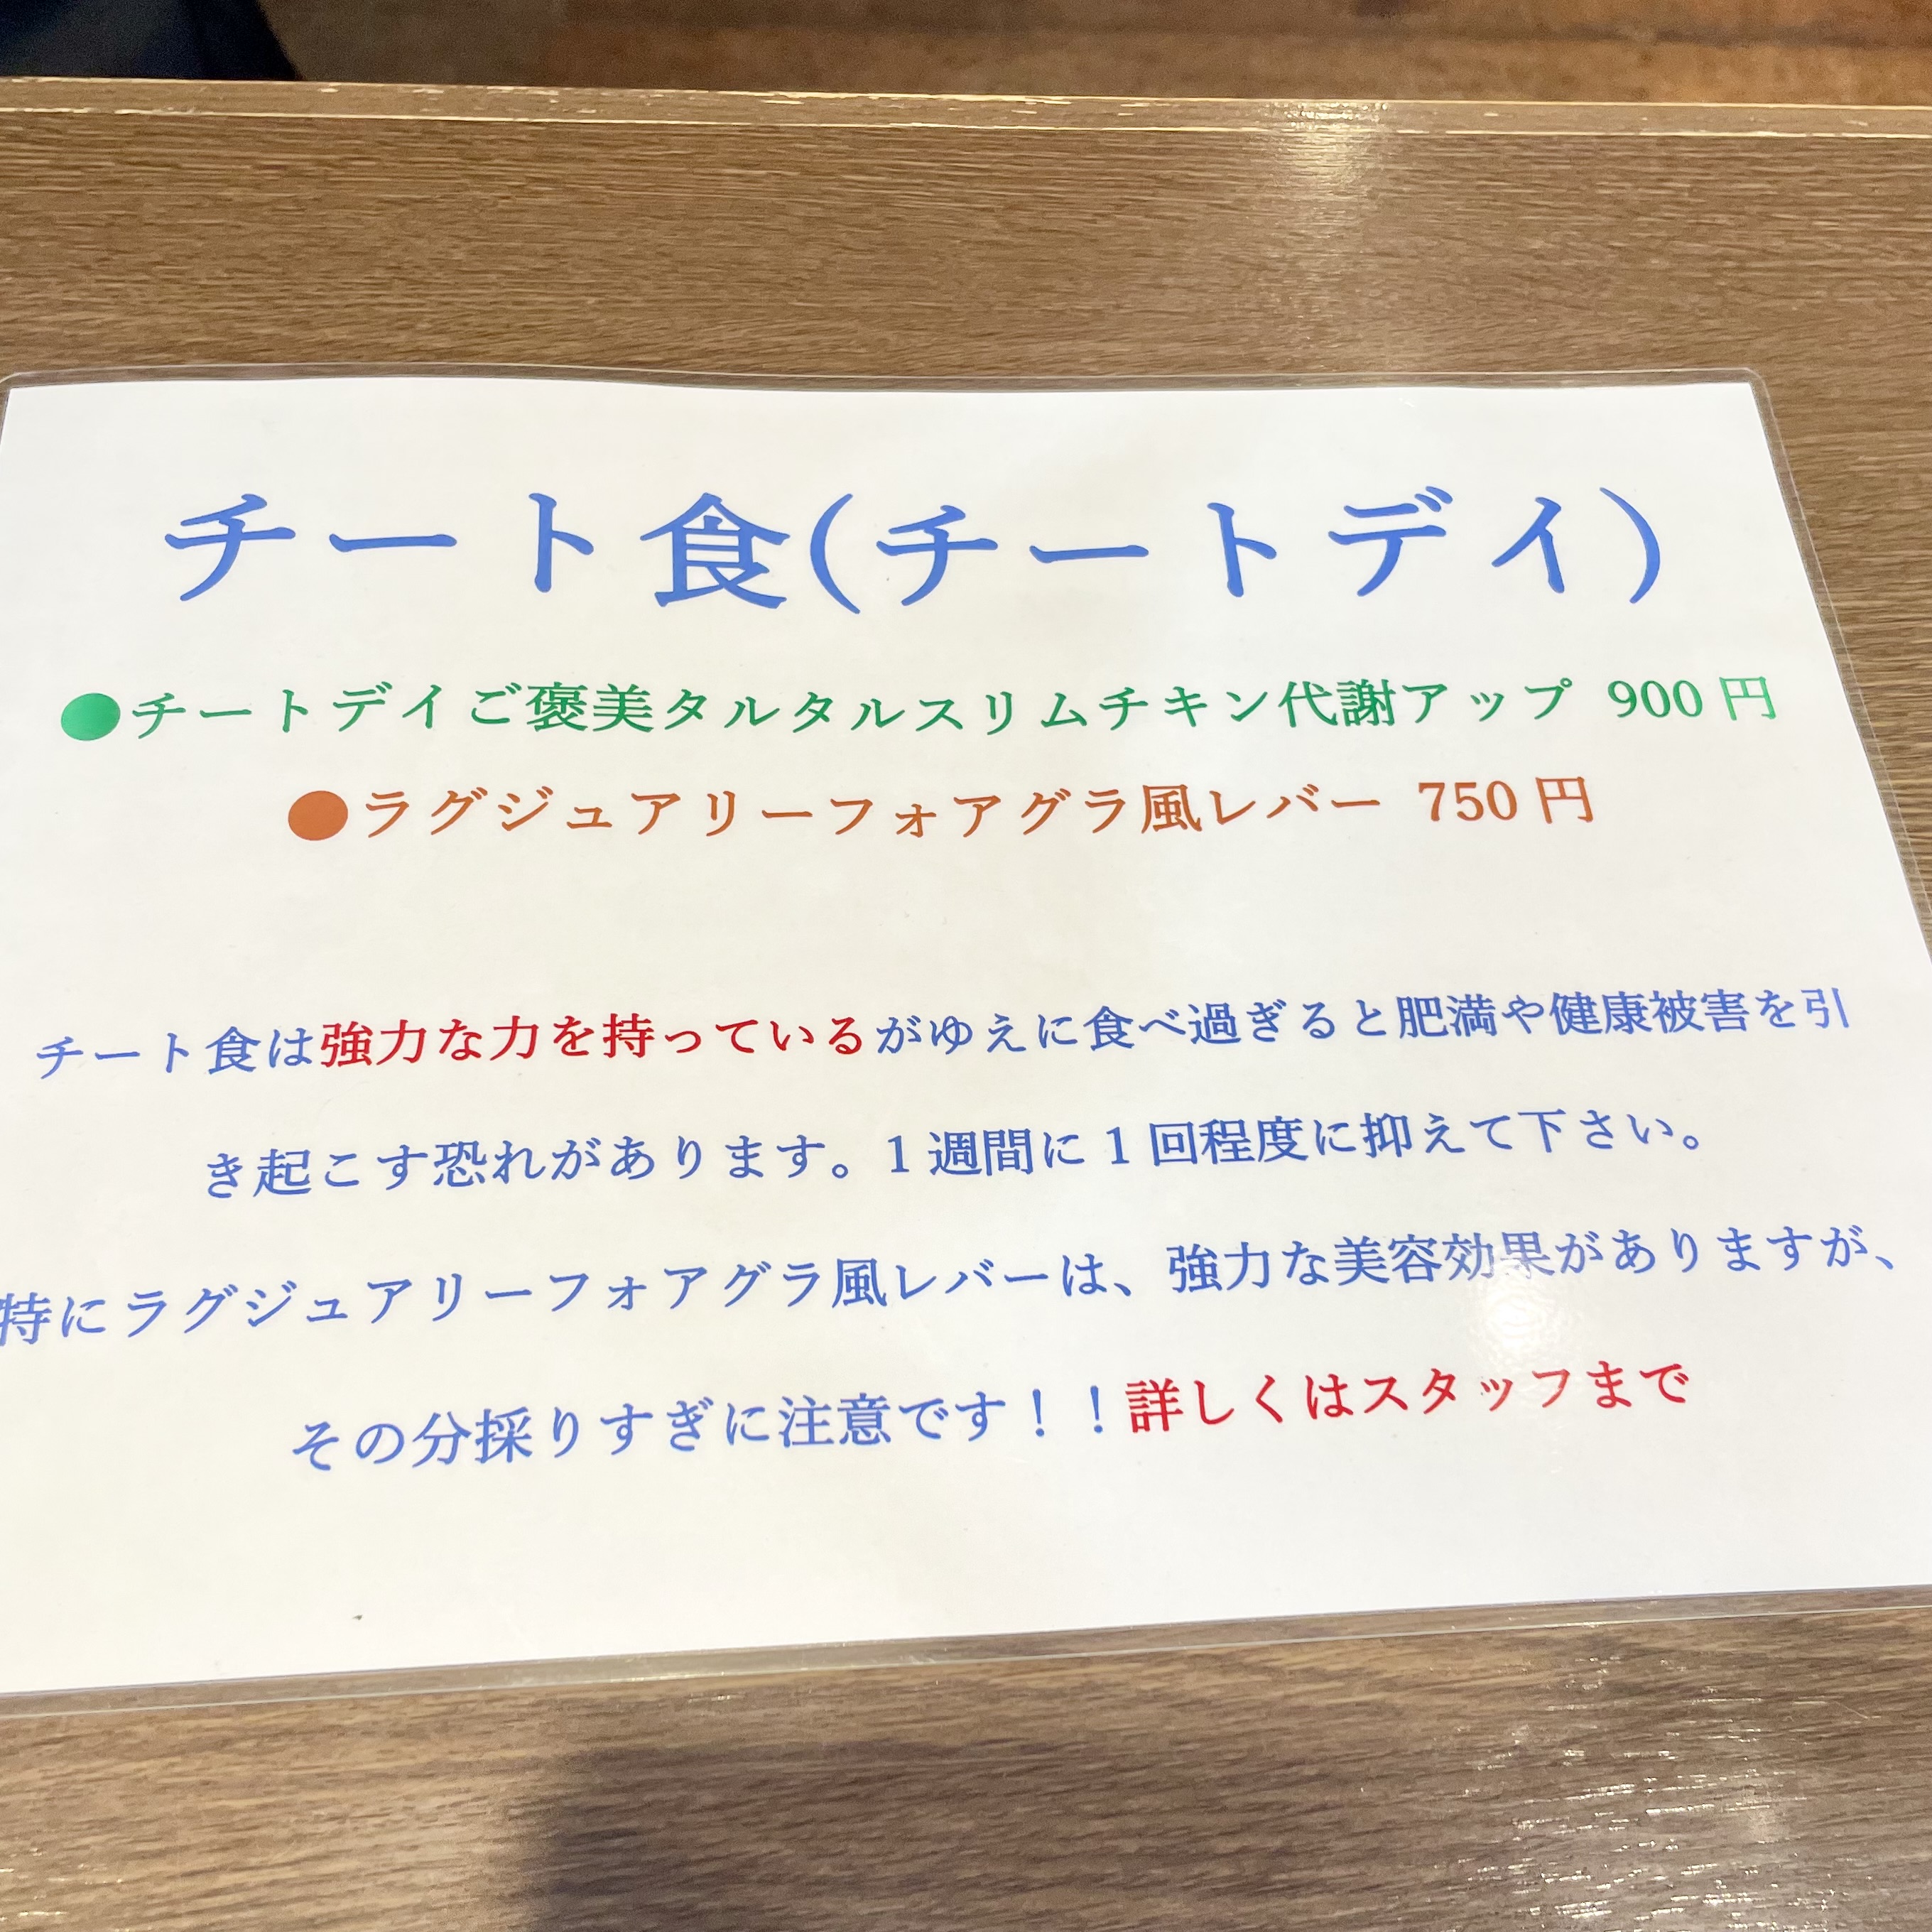 チート食(チートデイ)
●チートデイご褒美タルタルスリムチキン代謝アップ 900円
●ラグジュアリーフォアグラ風レバー 750円
チート食は強力な力を持っているがゆえに食べ過ぎると肥満や健康被害を引
き起こす恐れがあります。1週間に1回程度に抑えて下さい。
特にラグジュアリーフォアグラ風レバーは、強力な美容効果がありますが、
その分採りすぎに注意です！！詳しくはスタッフまで